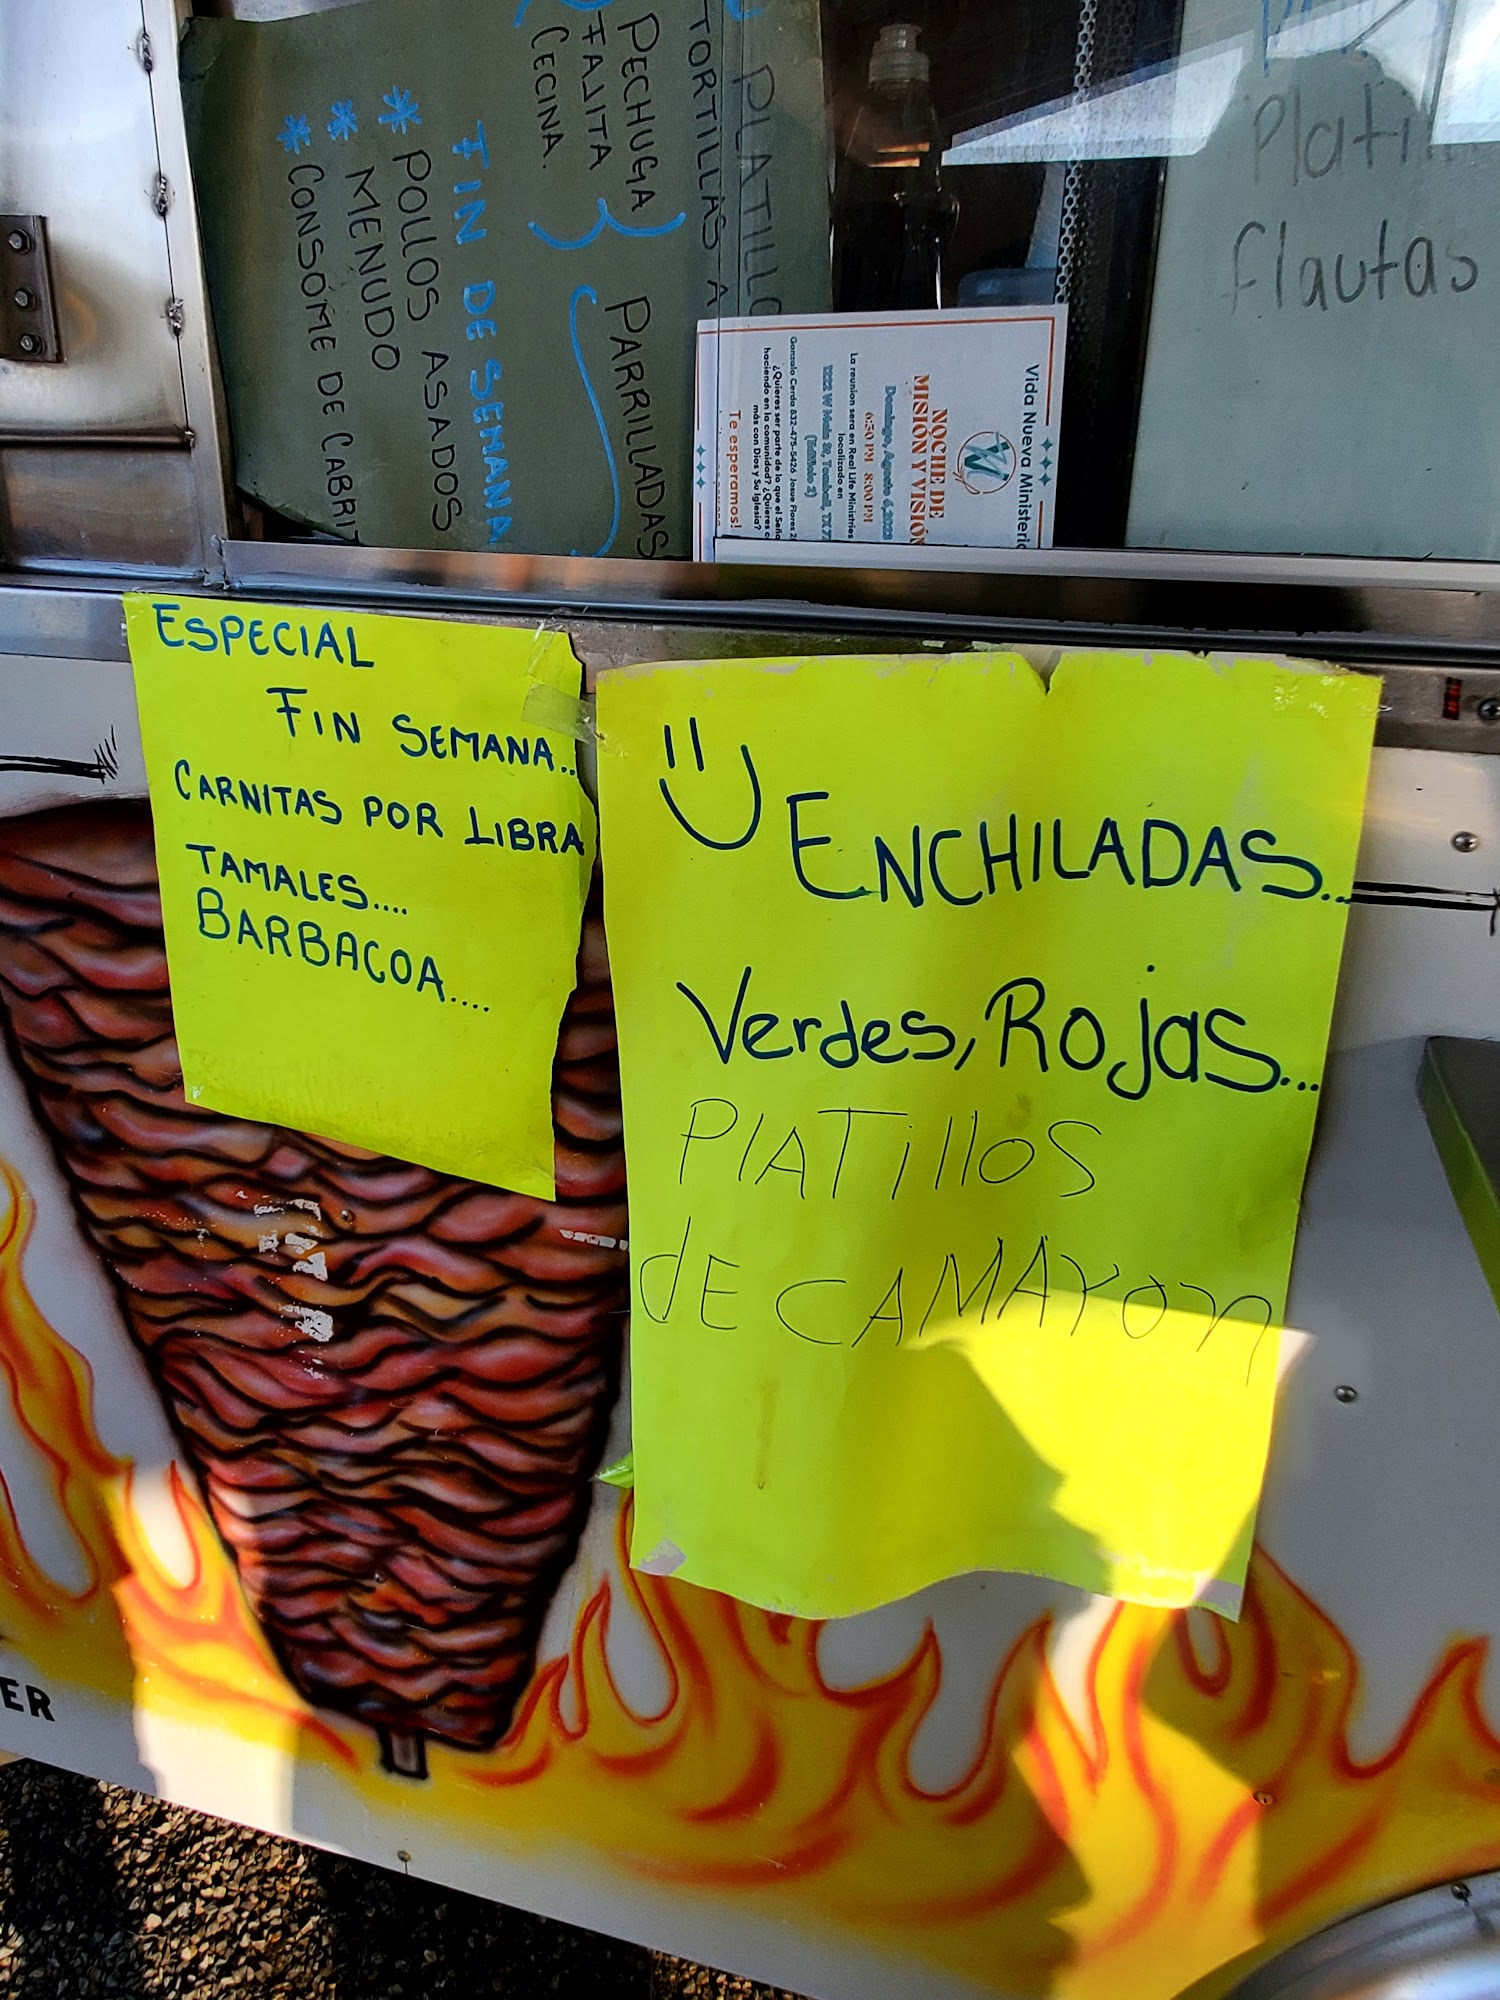 PLATILLO
TORTILLAS A
PECHUGA
FAJITA
CECINA.
PARRILLADAS
FIN DE SEMANA
* POLLOS ASADOS
* MENUDO
* CONSOMÉ DE CABRIT
Vida Nueva Ministeri
NOCHE DE
MISIÓN Y VISIÓN
Domingo, Agosto 6, 2023
6:30 PM 8:00 PM
La reunion sera en Real Life Ministries
localizado en
1222 W Main St, Tomball, TX 77
(Edificio 2)
Gonzalo Cerda 832-475-5426 Josue Flores
¿Quieres ser parte de lo que el Seño
haciendo en la comunidad? ¿Quieres
más con Dios y Su Iglesia?
Te esperamos!
Platil
flautas
ESPECIAL
FIN SEMANA..
CARNITAS POR LIBRA
TAMALES....
BARBACOA....
ENCHILADAS...
Verdes, Rojas...
PlATillOS
dE CAMAYON
ER